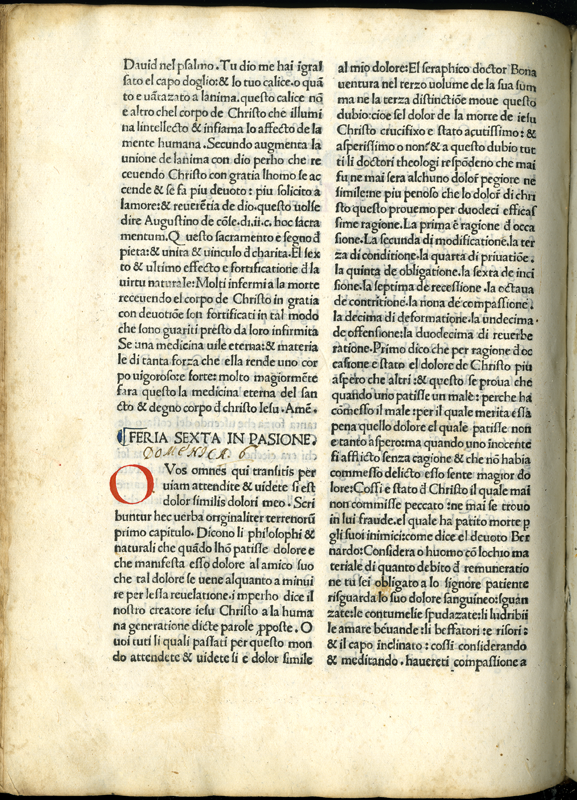 Dauid nel psalmo. Tu dio me hai igraſ
ſato el capo doglio:& lo tuo calice. o quā
to e uātazato a lanima. queſto calice nō
e altro chel corpo de Chriſto che illumi
na lintellecto & infiama lo affecto de la
mente humana. Secundo augmenta la
unione de lanima con dio perho che re
ceuendo Chriſton gratia lhomo ſe ac
cende & ſe fa piu deuoto: piu ſolicito a
lamore:& reuerētia de dio. queſto uolſe
dire Auguſtino de cōſe.di.ii.c. hoc ſacra
mentum. Queſto ſacramento e ſegno đ
pieta:& unita & uinculo đ charita. El ſex
to & ultimo effecto e fortificatione đ la
uirtu naturale: Molti infermi a la morte
receuendo el corpo de Chriſto in gratia
con deuotiōe ſon fortificati in tal modo
che ſono guariti pr̄eſto da loro infirmita
Se una medicina uile eterna:& materia
le di tanta forza che ella rende uno cor
po uigoroſo:e forte: molto magiorm̄ete
fara queſto la medicina eterna del ſan
cto & degno corpo đ chriſto Ieſu. Amē.
FERIA SEXTA IN PASIONE.
DOMENICA 6
O Vos omnes qui tranſitis per
uiam attendite & uidete ſi eſt
dolor ſimilis dolori meo. Scri
buntur hec uerba originaliter terrenorū
primo capitulo. Dicono li philoſophi &
naturali che quādo lhō patiſſe dolore e
che manifeſta eſſo dolore al amico ſuo
che tal dolore ſe uene alquanto a minui
re per leſſa reuelatione. imperho dice il
noſtro creatore ieſu Chriſto a la huma
na generatione dicte parole ppoſte. O
uoi tuti li quali paſſati per queſto mon
do attendete & uidete ſi e dolor ſimile
al mio dolore: El ſeraphico doctor Bona
uentura nel terzo uolume de la ſua ſum
ma ne la terza diſtinctiōe moue queſto
dubio:cioe ſel dolor de la morte de ieſu
Chriſto crucifixo e ſtato acutiſſimo:&
aſperiſſimo o nonſ & a queſto dubio tut
ti li doctori theologi reſpōdeno che mai
fu ne mai ſera alchuno dolor pegiore ne
ſimile:ne piu penoſo che lo dolor đ chri
ſto queſto prouemo per duodeci efficaſ
ſime ragione. La prima e ragione đ occa
ſione. La ſecunda di modificatiōe. la ter
za di conditione. la quarta di priuatiōe.
la quinta de obligatione. la ſexta de inci
ſione. la ſeptima de receſſione. la octaua
de contritione. la nona de compaſſione.
la decima di deformatione. la undecima.
de offenſione:la duodecima di reuerbe
ratione. Primo dico che per ragione đ oc
caſione e ſtato el dolore de Chriſto piu
aſpero che altri:& queſto ſe proua che
quando uno patiſſe un male: perche ha
cōmeſſo il male:per il quale merita eſſa
pena quello dolore el quale patiſſe non
e tanto aſpero:ma quando uno inocente
ſi afflicto ſenza cagione & che nō habia
commeſſo delicto eſſo ſente magior do
lore: Coſſi e ſtato đ Chriſto il quale mai
non commiſſe peccato:ne mai ſe trouo
in lui fraude. el quale ha patito morte p
gli ſuoi inimici:come dice el deuoto Ber
nardo: Conſidera o huomo cō lochio ma
teriale di quanto debito đ remuneratio
ne tu ſei obligato a lo ſignore patiente
riſguarda lo ſuo dolore ſanguineo: ſguan
zate: le contumelie ſpudazate: li ludribii
le amare beuande:li beffatori:e riſori:
& il capo inclinato: coſſi conſiderando
& meditando. hauereti compaſſione a